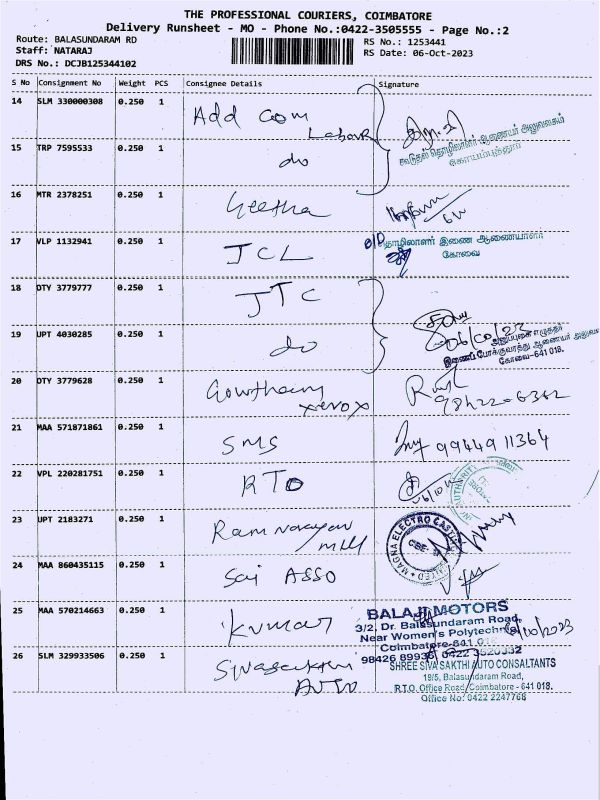 THE PROFESSIONAL COURIERS, COIMBATORE
Delivery Runsheet - MO - Phone No.:0422-3505555 - Page No.:2
Route: BALASUNDARAM RD
Staff: NATARAJ
DRS No.: DCJB125344102
RS No.: 1253441
RS Date: 06-Oct-2023
S No Consignment No Weight PCS Consignee Details Signature
14 SLM 330000308 0.250 1 Add Com Labour
15 TRP 7595533 0.250 1 do
கூடுதல் தொழிலாளர் ஆணையர் அலுவலகம்
கோயம்புத்தூர்
16 MTR 2378251 0.250 1 Geetha
17 VLP 1132941 0.250 1 JCL
O/O தொழிலாளர் இணை ஆணையாளர்
கோவை
18 DTY 3779777 0.250 1 JTC
19 UPT 4030285 0.250 1 do
06/10/23
இணைப் போக்குவரத்து ஆணையர் அலுவ
கோவை-641 018.
20 DTY 3779628 0.250 1 Gowtham xerox
21 MAA 571871861 0.250 1 SMS 9944911364
22 VPL 220281751 0.250 1 RTO
23 UPT 2183271 0.250 1 Ram Narayan Mill
MAGNA ELECTRO CASTINGS LIMITED
24 MAA 860435115 0.250 1 Sai ASSO
25 MAA 570214663 0.250 1 Kumar
BALAJI MOTORS
3/2, Dr. Balasundaram Road,
Near Women's Polytechnic
Coimbatore-641 018
26 SLM 329933506 0.250 1 Sivasakthi Auto
SHREE SIVA SAKTHI AUTO CONSALTANTS
19/5, Balasundaram Road,
R.T.O. Office Road, Coimbatore - 641 018.
Office No: 0422 2247768